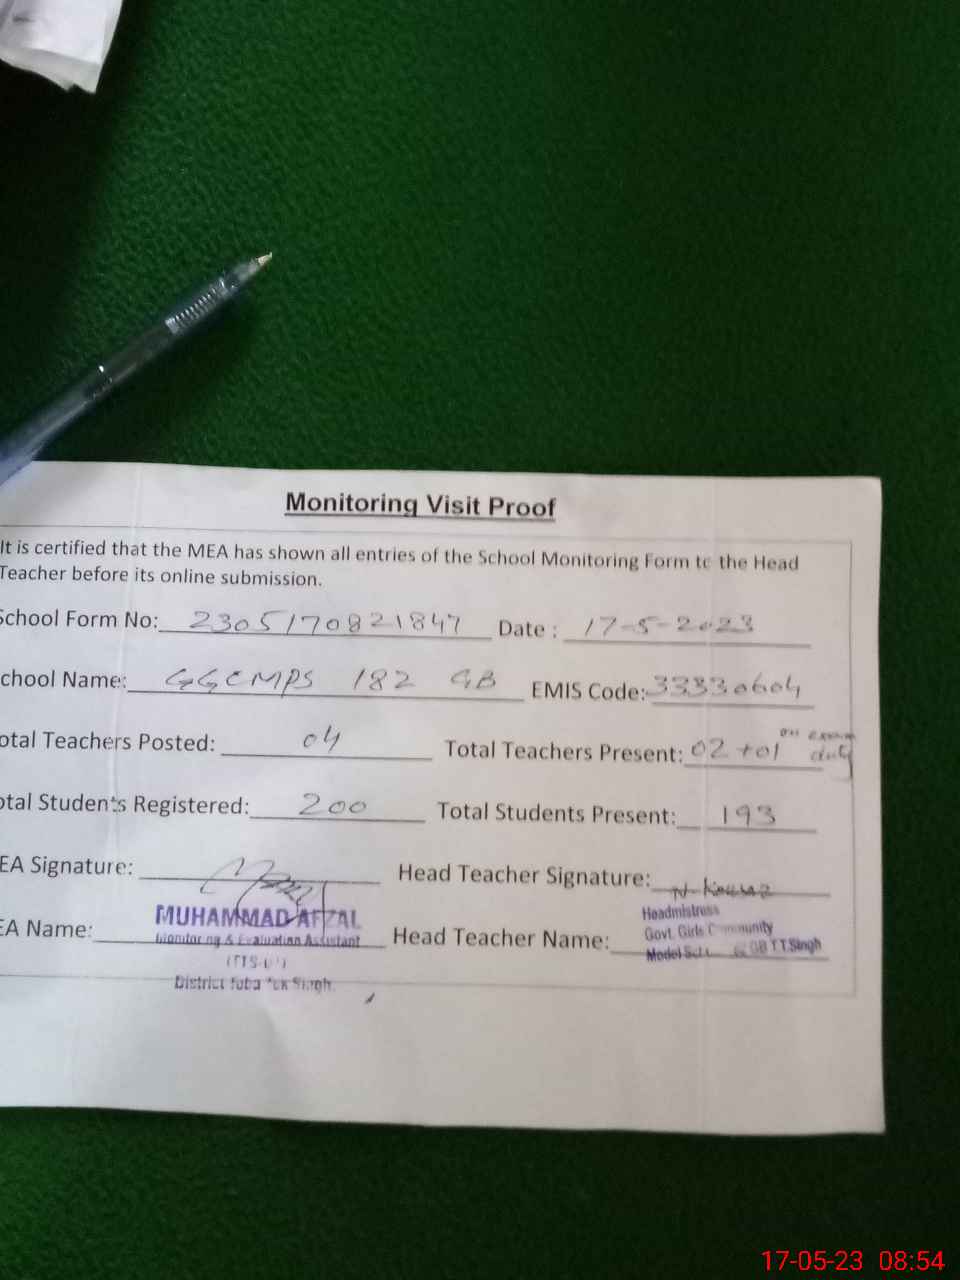 Monitoring Visit Proof
It is certified that the MEA has shown all entries of the School Monitoring Form to the Head
Teacher before its online submission.
School Form No: 2305170821847 Date : 17-5-2023
chool Name: GGCMPS 182 GB EMIS Code: 33330604
otal Teachers Posted: 04 Total Teachers Present: 02 +01 on exam duty
otal Students Registered: 200 Total Students Present: 193
EA Signature: Head Teacher Signature: N. Kausar
EA Name: MUHAMMAD AFZAL Head Teacher Name: Headmistress
Monitoring & Evaluation Assistant Govt. Girls Community
Model GB T.T.Singh
District Toba Tek Singh.
17-05-23 08:54